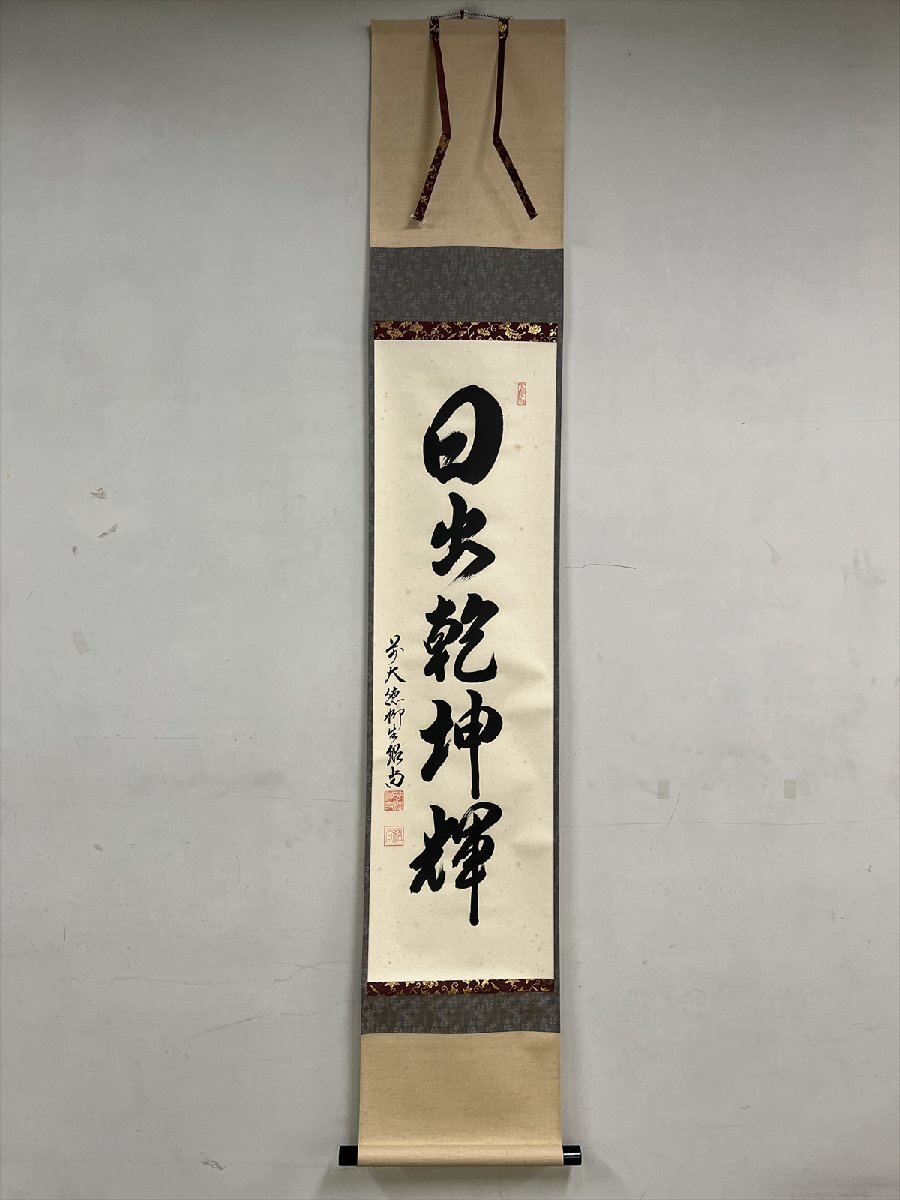 日出乾坤輝
前大徳柳生紹尚